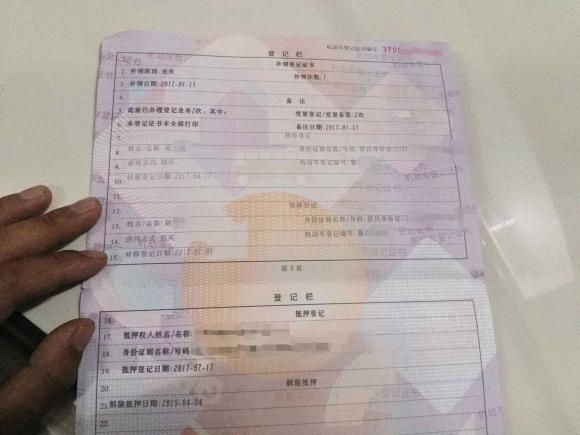 登记栏
机动车登记证书编号:3700
1. 补领登记证书
2. 补领原因:丢失 补领次数:1
3. 补领日期:2017-01-11
4. 备注
5. 此前已办理登记业务2次,其中: 变更登记/变更备案:2次
6. 本登记证书未全部打印 备注日期:2017-01-11
7. 转移登记
8. 姓名/名称: 身份证明名称/号码:居民身份证/370
9. 获得方式:购买 机动车登记编号:鲁
10. 转移登记日期:2017-04-17
11.
12. 转移登记
13. 姓名/名称: 身份证明名称/号码:居民身份证/
14. 获得方式:购买 机动车登记编号:鲁
15. 转移登记日期:2017-07-05
第3页
登记栏
16. 抵押登记
17. 抵押权人姓名/名称:
18. 身份证明名称/号码
19. 抵押登记日期:2017-07-17
20. 解除抵押
21. 解除抵押日期:2019-04-04
22.